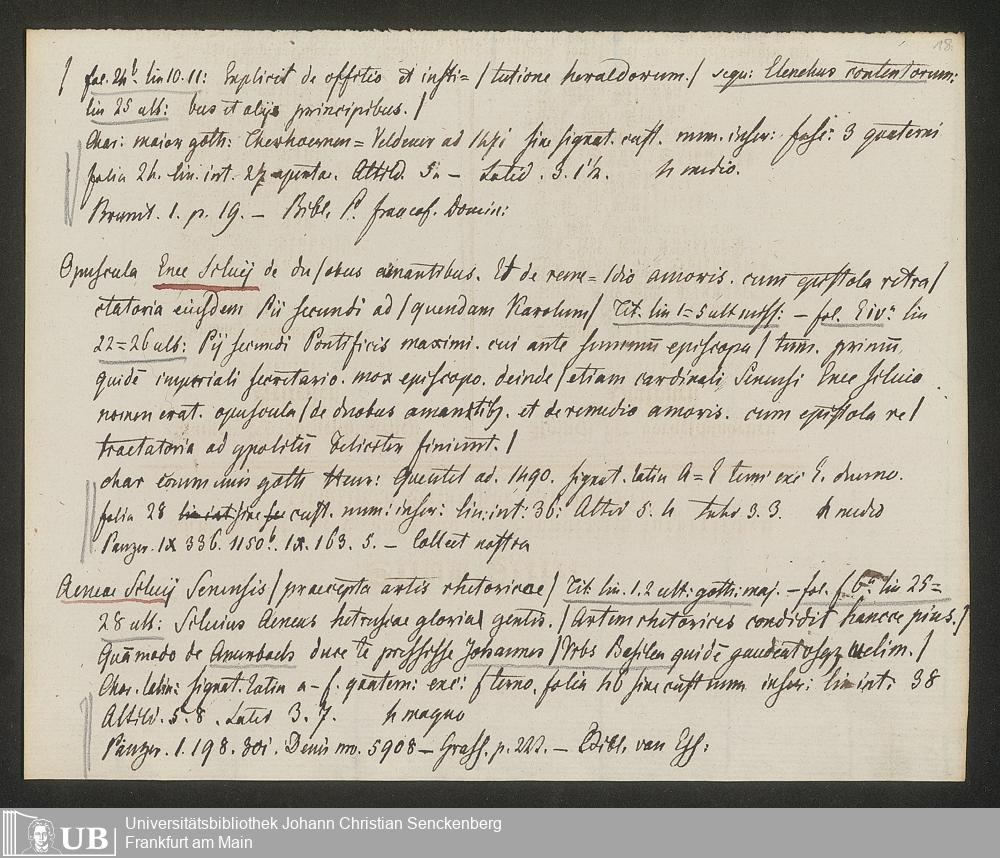 18.
/ fol. 24b. lin 10. 11: Explicit de offitio et insti= / tutione heraldorum. / sequ: Elenchus contentorum:
lin 25 ult: bus et alijs principibus. /
Char: maior goth: Therhoernen = Veldener ad 1471 sine signat. cust. num. inser: fasc: 3 quaterni
folia 24. lin. int. 27 aperta. Altitd. 5. — Latid. 3. 1/2. 4 medio.
Brunet. 1. p. 19. — Bibl. P. francof. Domin:
Opuscula Enee Siluij de du / obus amantibus. Et de reme = / dio amoris. cum epistola retra /
ctatoria eiusdem Pii secundi ad / quendam Karolum / Tit. lin 1 = 5 ult miss: — fol. E iv.a lin
22 = 26 ult: Pij secundi Pontificis maximi. cui ante summum episcopa / tum. primum,
quidē imperiali secretario. mox episcopo. deinde / etiam cardinali, Senensi Enee siluio
nomen erat. opuscula / de duobus amantibz. et de remedio amoris. cum epistola re /
tractatoria ad ypolitū Feliciter finiunt. /
char communis goth Henr: Quentel ad. 1490. signat. latin A = E terni exc E. duerno.
folia 28 sine cust. num: inser: lin: int: 36: Altid 5. 4 Latid 3. 3. 4 medio
Panzer. IX 336. 1150b. IX. 163. 5. — Collect nostra
Aeneae Siluij Senensis / praecepta artis rhetoricae / Tit. lin. 1. 2 ult: goth: maj. — fol. f 6a lin 25 =
28 ult: Siluius Aeneus hetruscae gloria gentis. / Artem rhetorices condidit hancce pius. /
Quāmodo de Amerbach duce te pressisse Johannes / Vrbs Basilea quidē gaudeat velim. /
Char. latin: signat. latin a – f. quatern: exc: f terno. folia 46 sine cust num inser: lin int: 38
Altitd. 5. 8. Latid 3. 7. 4 magno
Panzer. 1. 198. 301. Denis no. 5908 — Grass. p. 222. — Bibl. van Ess:
UB
Universitätsbibliothek Johann Christian Senckenberg
Frankfurt am Main